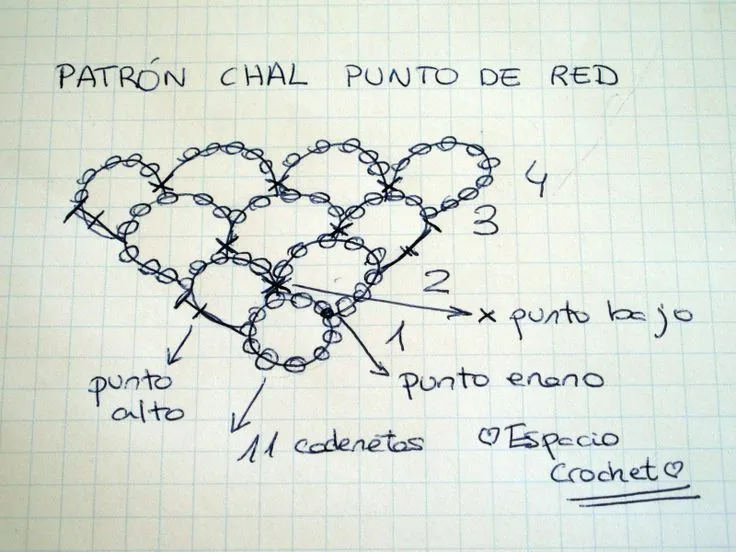 PATRÓN CHAL PUNTO DE RED
4
3
2
x punto bajo
1
punto enano
punto
alto
11 cadenetas
♡ Espacio
Crochet ♡